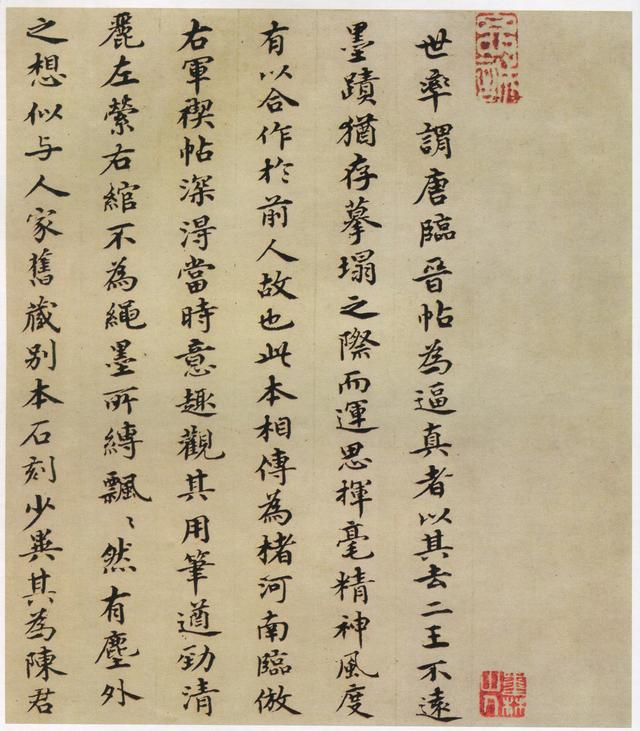 世率謂唐臨晉帖為逼真者以其去二王不遠
墨蹟猶存摹塌之際而運思揮毫精神風度
有以合作於前人故也此本相傳為楮河南臨倣
右軍禊帖深淂當時意趣觀其用筆遒勁清
麗左縈右綰不為繩墨所縛飄〻然有塵外
之想似与人家舊蔵别本石刻少異其為陳君